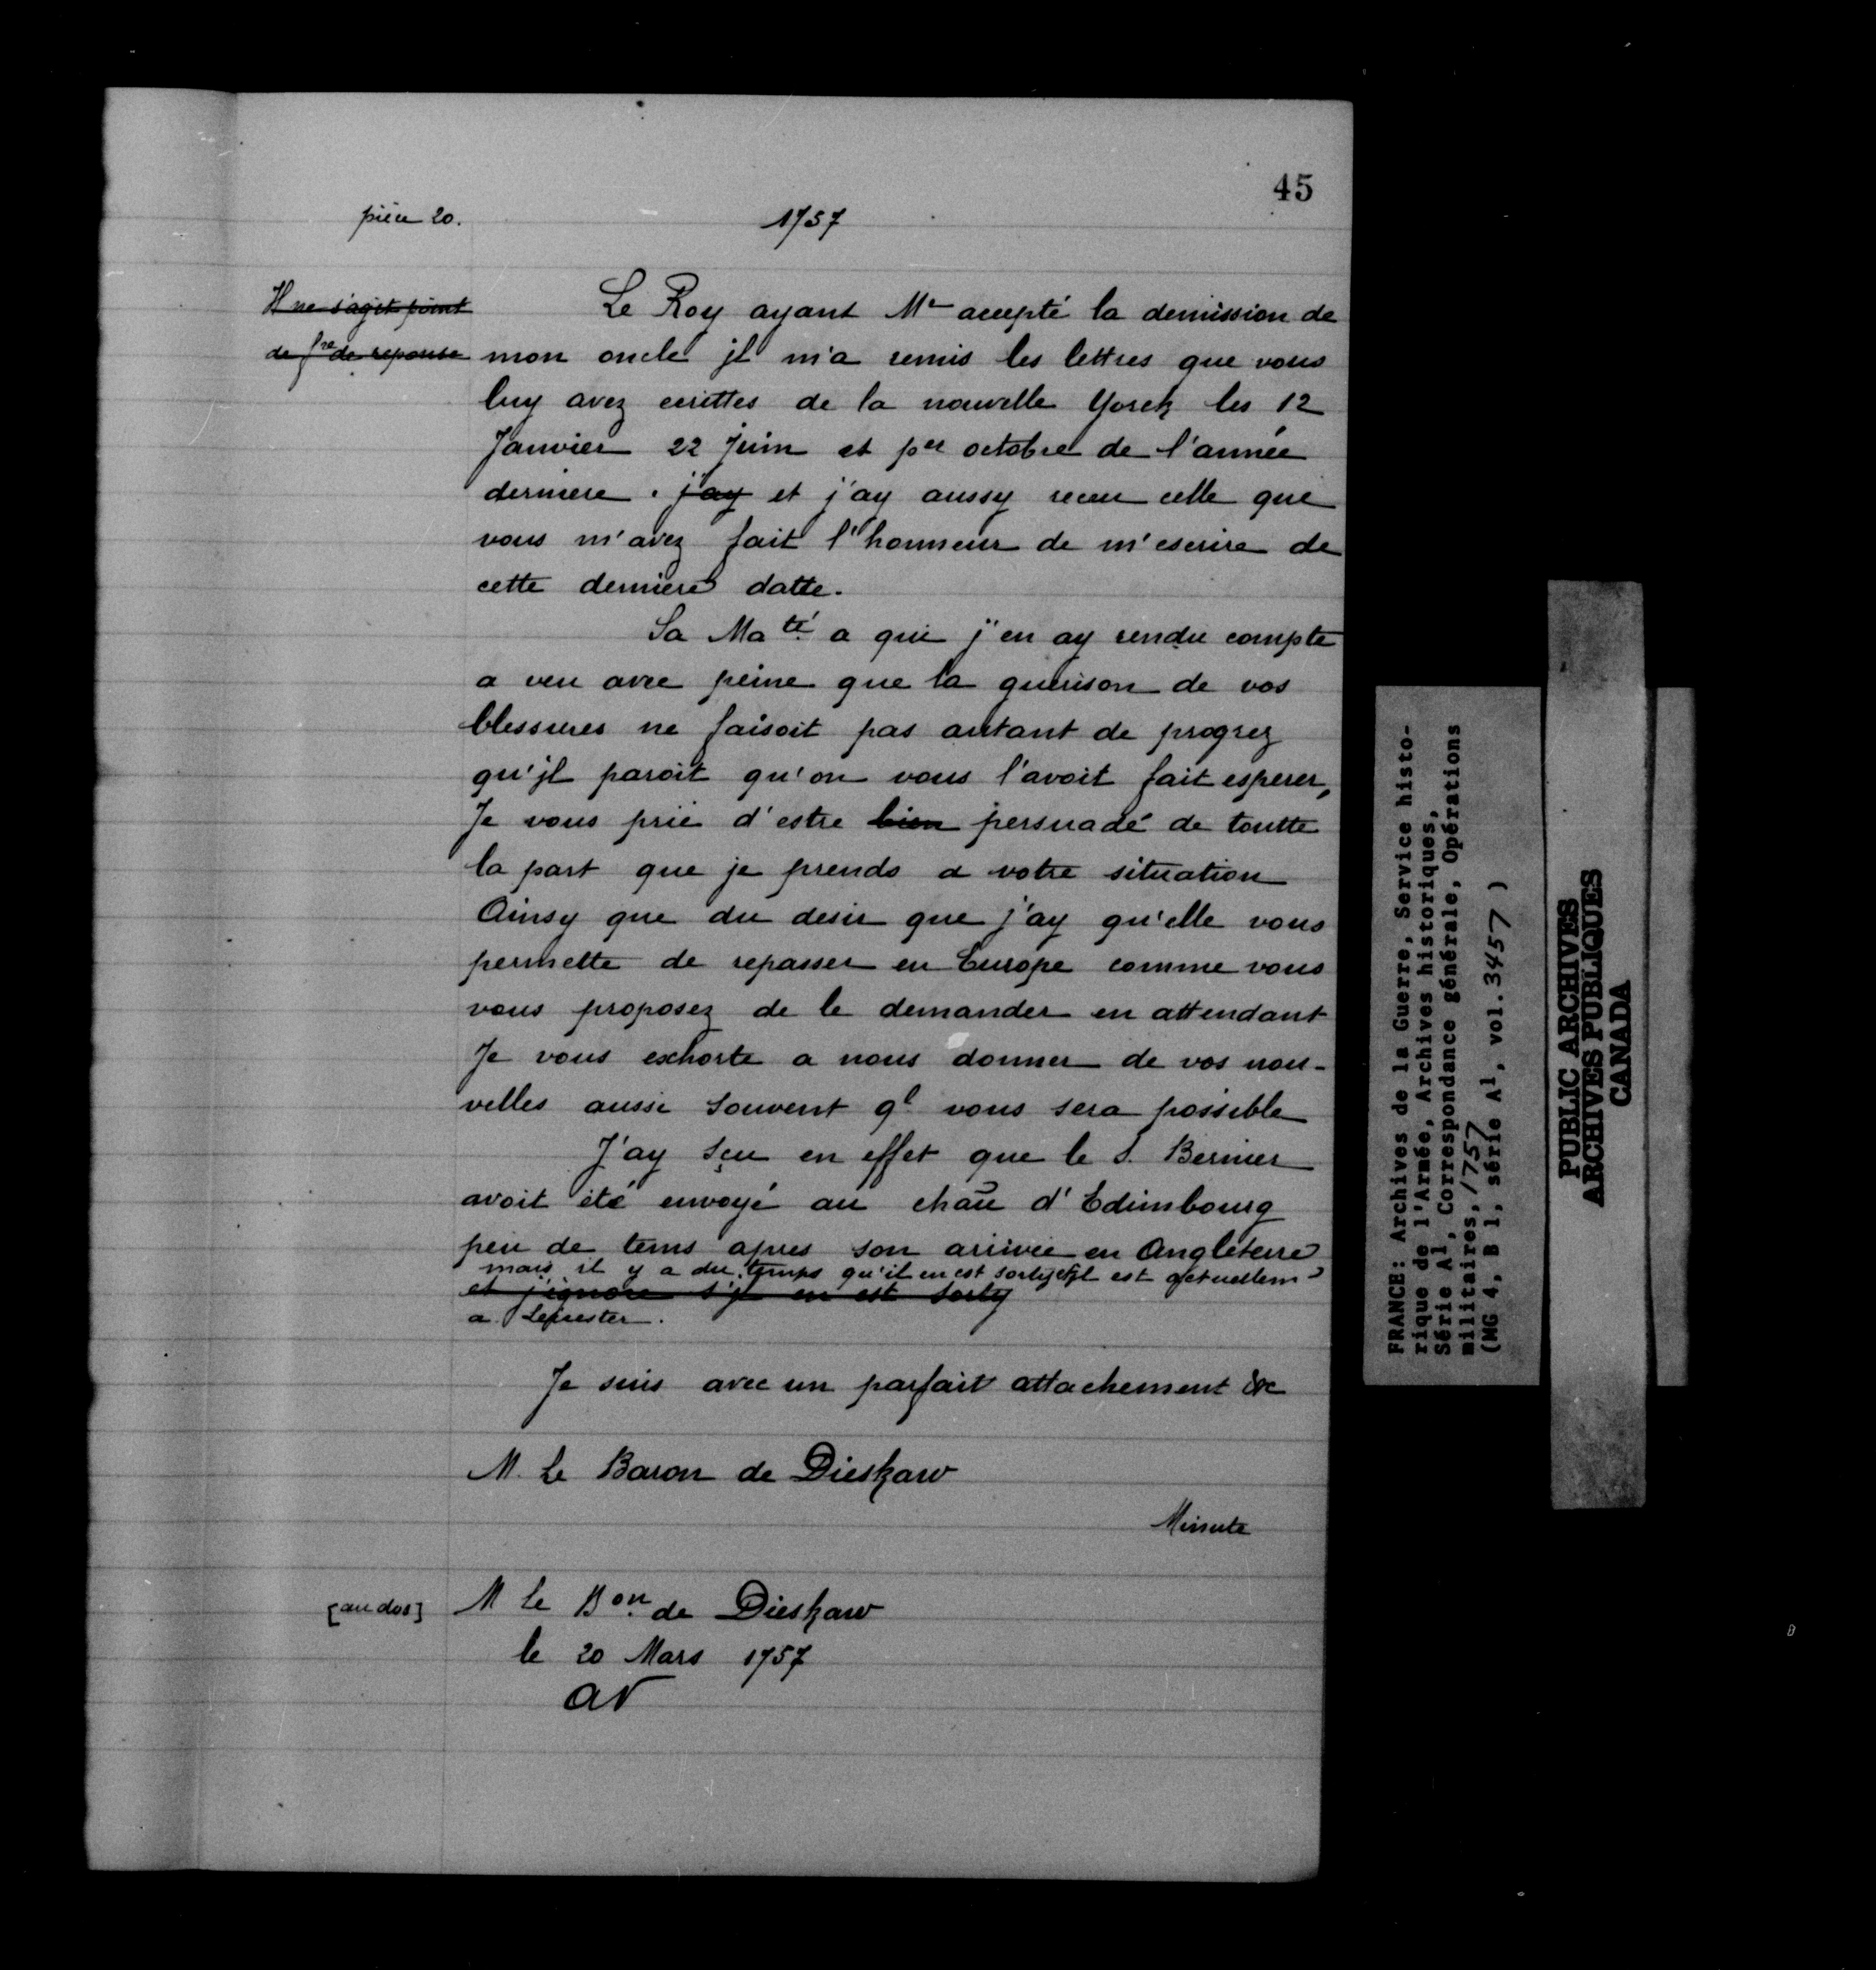 45
pièce 20.
1757
Il ne s'agit point
de fre de reponse
Le Roy ayant Mr accepté la demission de
mon oncle jl m'a remis les lettres que vous
luy avez ecrittes de la nouvelle Yorck les 12
Janvier 22 juin et per octobre de l'année
derniere . j'ay et j'ay aussy receu celle que
vous m'avez fait l'honneur de m'escrire de
cette derniere datte.
Sa Maté a qui j'en ay rendu compte
a veu avec peine que la guerison de vos
blessures ne faisoit pas autant de progrez
qu'jl paroit qu'on vous l'avoit fait esperer,
Je vous prie d'estre bien persuadé de toutte
la part que je prends a votre situation
Ainsy que du desir que j'ay qu'elle vous
permette de repasser en Europe comme vous
vous proposez de le demander en attendant
Je vous exhorte a nous donner de vos nou-
velles aussi souvent ql vous sera possible
J'ay sçu en effet que le S. Bernier
avoit été envoyé au chaū d'Edimbourg
peu de tems apres son arrivée en Angleterre
mais il y a du temps qu'il en est sorty et jl est actuellemt
et j'ignore s'jl en est sorty
a Leicester.
Je suis avec un parfait attachement &c
M. Le Baron de Dieskaw
Minute
[au dos]
M Le Bon. de Dieskaw
le 20 Mars 1757
FRANCE: Archives de la Guerre, Service histo-
rique de l'Armée, Archives historiques,
Série A1, Correspondance générale, Opérations
militaires, 1757
(MG 4, B 1, série A1, vol. 3457 )
PUBLIC ARCHIVES
ARCHIVES PUBLIQUES
CANADA